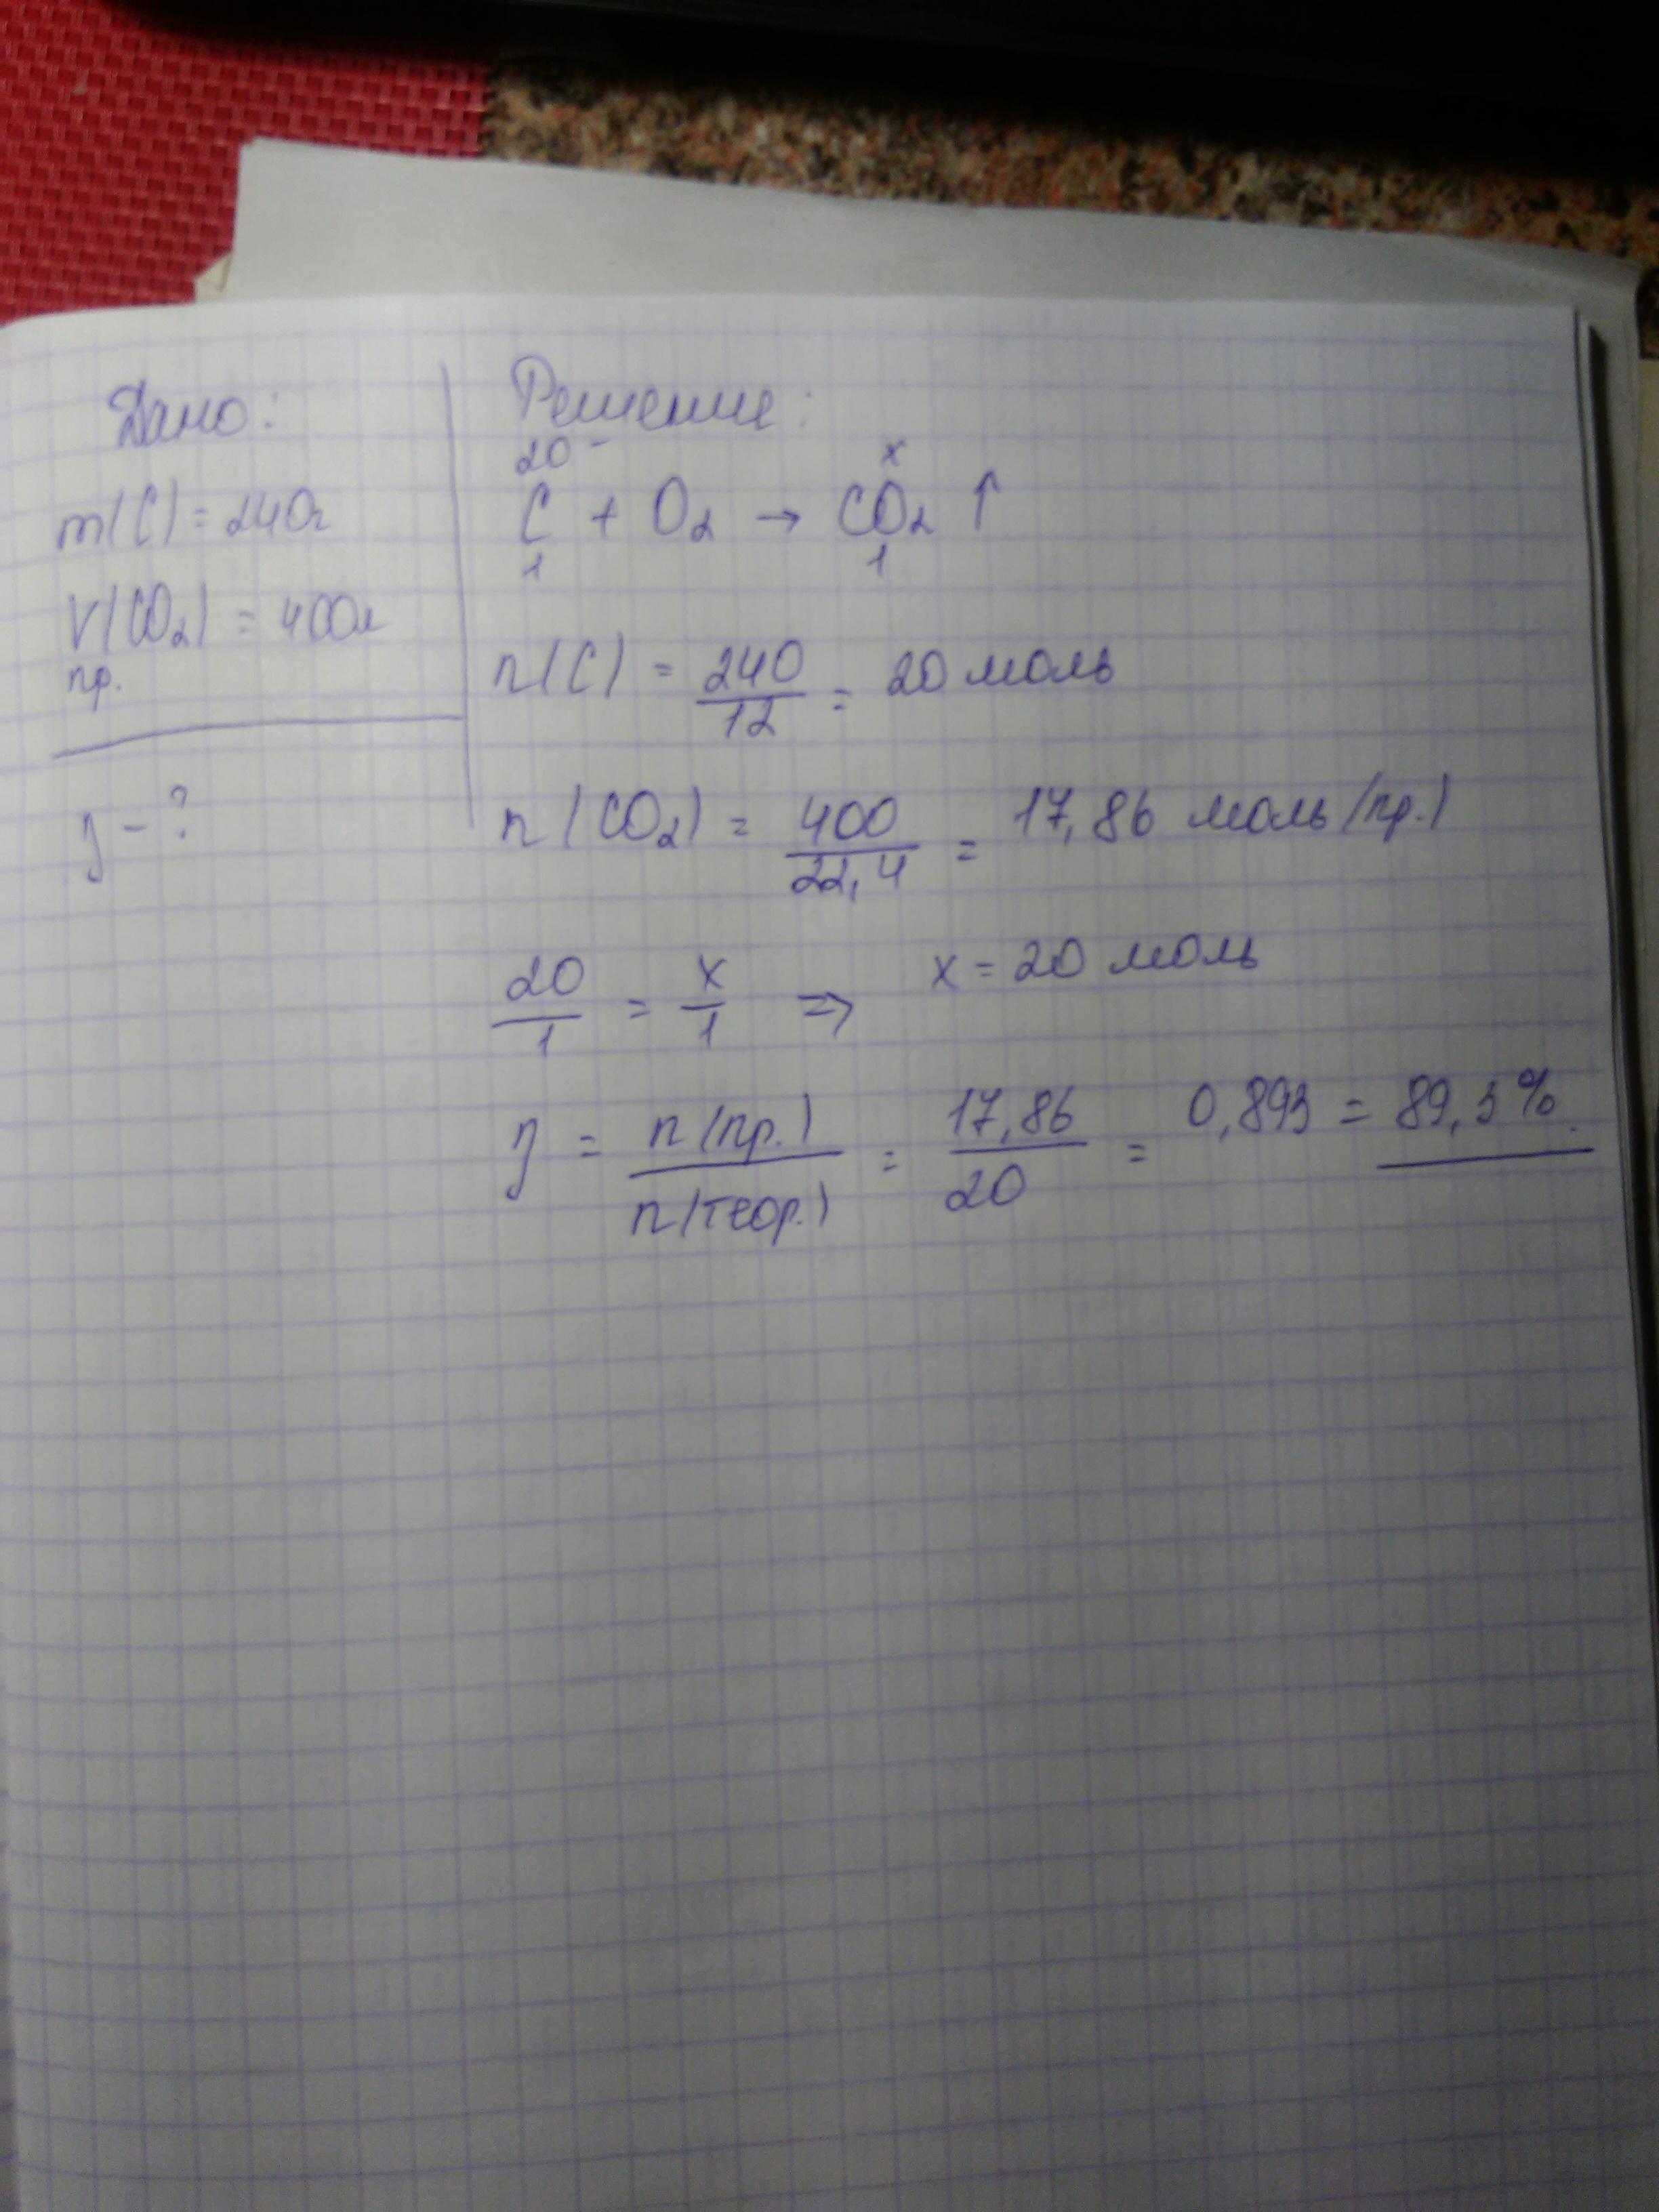 Дано:
m(C) = 240г
V(CO₂) = 400л
пр.
η - ?
Решение:
20 x
C + O₂ → CO₂ ↑
1 1
n(C) = 240/12 = 20 моль
n(CO₂) = 400/22,4 = 17,86 моль (пр.)
20/1 = x/1 => x = 20 моль
η = n(пр.)/n(теор.) = 17,86/20 = 0,893 = 89,3%.